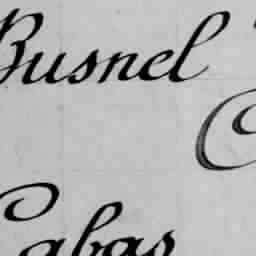 Busnel
Cabas